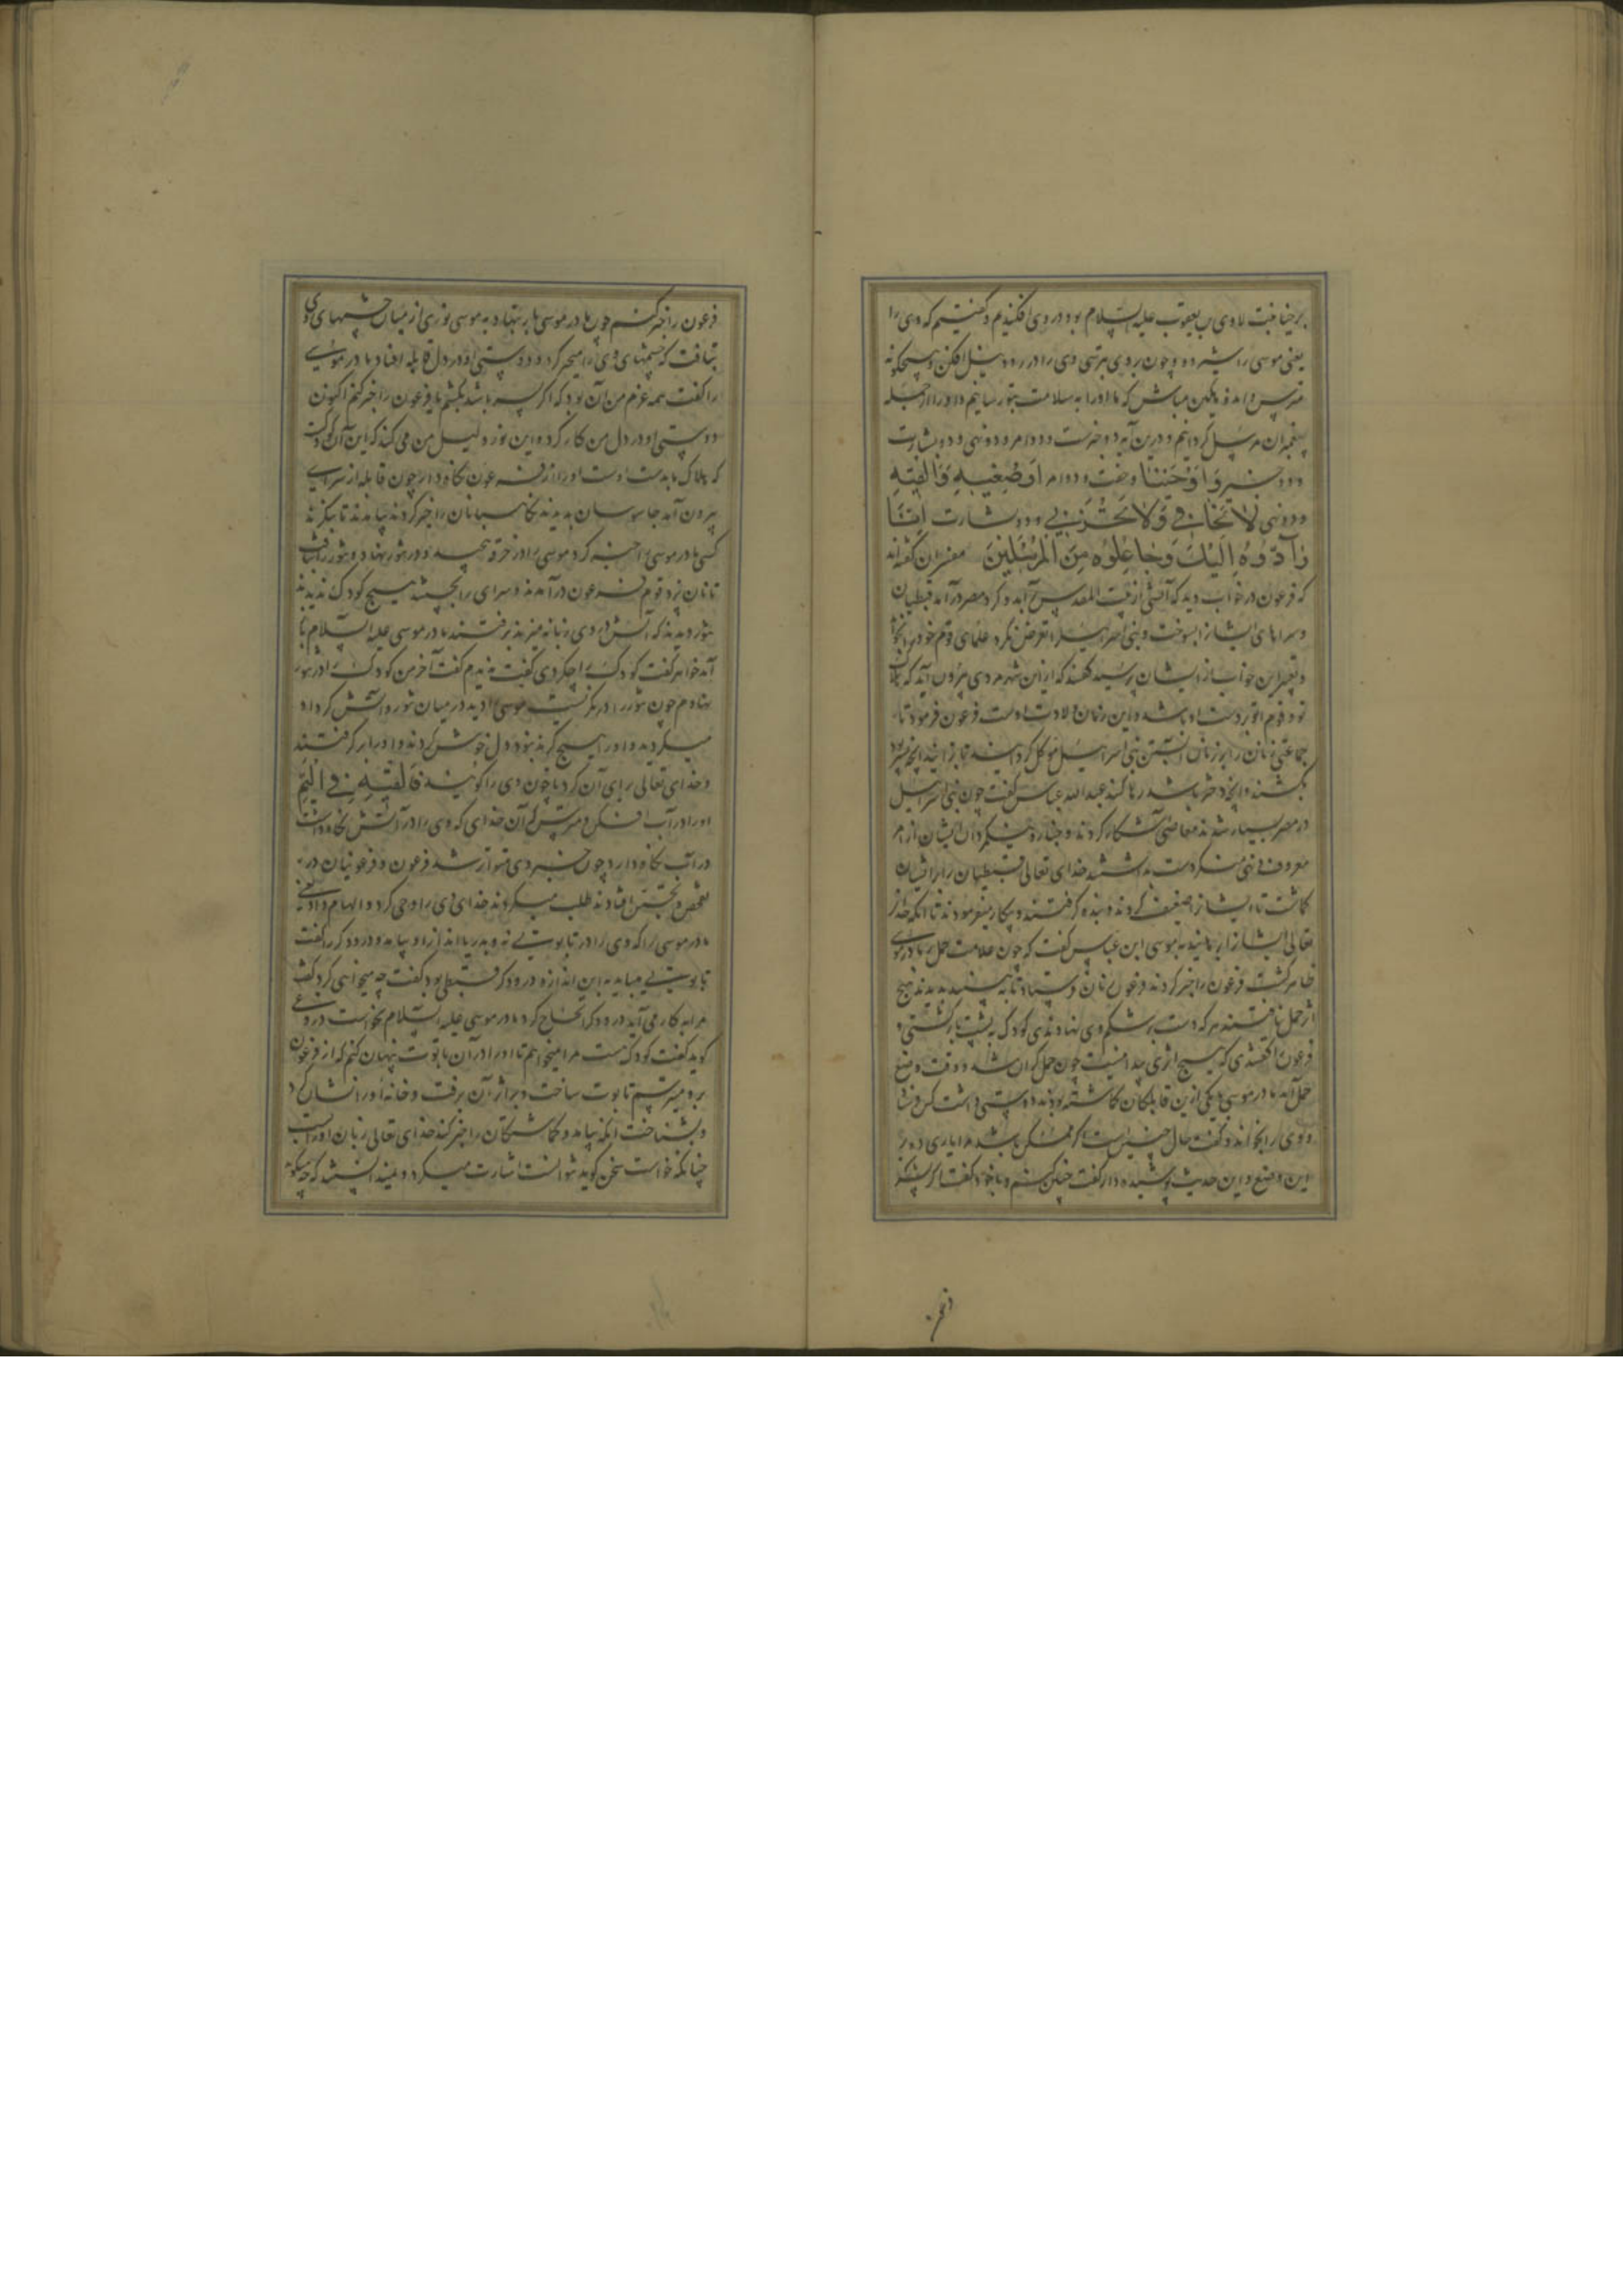 برخیانت لاوی بن یعقوب علیه السلام بود در وی افکندیم و گفتیم که وی را
یعنی موسی را شیر ده و چون بر وی بترسی وی را در رود نیل افکن و هیچگونه
مترس و اندوهگین مباش که ما او را به سلامت بتو رسانیم و او را از جمله
پیغمبران مرسل گردانیم و درین آیه دو خبرست و دو امر و دو نهی و دو بشارت
دو خبر وَاَوْحَیْنَا و خفت و دو امر اَرْضِعِیهِ فَاَلْقِیهِ
و دو نهی لَا تَخَافِی وَلَا تَحْزَنِی و دو بشارت اِنَّا
رَآدُّوهُ اِلَیْکِ وَجَاعِلُوهُ مِنَ الْمُرْسَلِینَ مفسران گفته‌اند
که فرعون در خواب دید که آتشی از بیت المقدس آمد و گرد مصر درآمد قبطیان
و سراهای ایشانرا بسوخت و بنی اسراییل را تعرض نکرد علمای قوم خود را بخواند
و تعبیر این خواب از ایشان پرسید گفتند که ازین شهر مردی بیرون آید که هلاک
تو و قوم تو بر دست او باشد و این زمان ولادت اوست فرعون فرمود تا
جماعتی زنان را بر زنان آبستن بنی اسراییل موکل گردانیدند تا بزایند آنچه پسر بود
بکشند و آنچه دختر باشد رها کنند عبدالله عباس گفت چون بنی اسراییل
در مصر بسیار شدند معاصی آشکار کردند و جباره و نیکمردان ایشان از امر
معروف و نهی منکر دست بداشتند خدای تعالی قبطیان را بر ایشان
گماشت تا ایشانرا ضعیف کردند و بنده گرفتند و بیکار میفرمودند تا آنکه خدای
تعالی ایشانرا برهانید به موسی ابن عباس گفت که چون علامت حمل بر مادر موسی
ظاهر گشت فرعون را خبر کردند فرعون زنان فرستاد تا به بینند بدیدند هیچ
اثر حمل نیافتند هر که دست بر شکم وی نهادندی کودک به پشت باز گشتی و
فرعون را گفتندی که هیچ اثری پیدا نیست چون حمل گران شد و وقت وضع
حمل آمد مادر موسی با یکی ازین قابلگان گماشته بودند دوستی داشت کس فرستاد
و وی را بخواند و گفت حال چنین است اگر ممکن باشد مرا یاری ده در
این وضع و این حدیث پوشیده دار گفت چنین کنم و با خود گفت اگر پسر
فرعون را خبر کنم چون مادر موسی بار بنهاد به موسی نوری از میان چشمهای وی
بتافت که چشمهای وی را متحیر کرد و دوستی او در دل قابله افتاد مادر موسی
را گفت همه عزم من آن بود که اگر پسر باشد بکشم یا فرعون را خبر کنم اکنون
دوستی او در دل من کار کرد و این نور دلیل من می کند که این آن کودکست
که هلاک ما بدست اوست او را از فرعون نگاه دار چون قابله از سرای
بیرون آمد جاسوسان بدیدند نگاهبانان را خبر کردند بیامدند تا بنگرند
کسی مادر موسی را خبر کرد موسی را در خرقه پیچید و در تنور بنهاد و تنور را بتافت
تا نان پزد قوم فرعون درآمدند و سرای را بجستند هیچ کودک ندیدند
تنور دیدند که آتش در وی زبانه میزند برفتند مادر موسی علیه السلام باز
آمد خواهر گفت کودک را چه کردی گفت ندیدم گفت آخر من کودک را در تنور
بنهادم چون تنور را در نگریست موسی را دید در میان تنور و آتش گرد او
میگردید و او را هیچ گزند نبود دل خوش کردند و او را بر گرفتند
و خدای تعالی برای آن کرد تا چون وی را گویند فَاَلْقِیهِ فِی الْیَمِّ
او را در آب افکن و مترس که آن خدای که وی را در آتش نگاه داشت
در آب نگاه دارد چون خبر وی متواتر شد فرعون و فرعونیان در
تفحص و تجسس افتادند طلب میکردند خدای وی را وحی کرد و الهام داد یعنی
مادر موسی را که وی را در تابوتی نه و بدریا انداز او بیامد و درودگر را گفت
تابوتی میباید به این اندازه درودگر قبطی بود گفت چه میخواهی کرد گفت
مرا به کار می آید درودگر الحاح کرد مادر موسی علیه السلام نخواست دروغی
گوید گفت کودکیست مرا میخواهم تا او را در آن تابوت پنهان کنم که از فرعون
بر و میترسم تابوت ساخت و بر اثر آن برفت و خانه او را نشان کرد
و بشناخت آنگه بیامد و گماشتگان را خبر کند خدای تعالی زبان او را ببست
چنانکه خواست سخن گوید نتوانست اشارت میکرد و نمیدانستند که چه میگوید